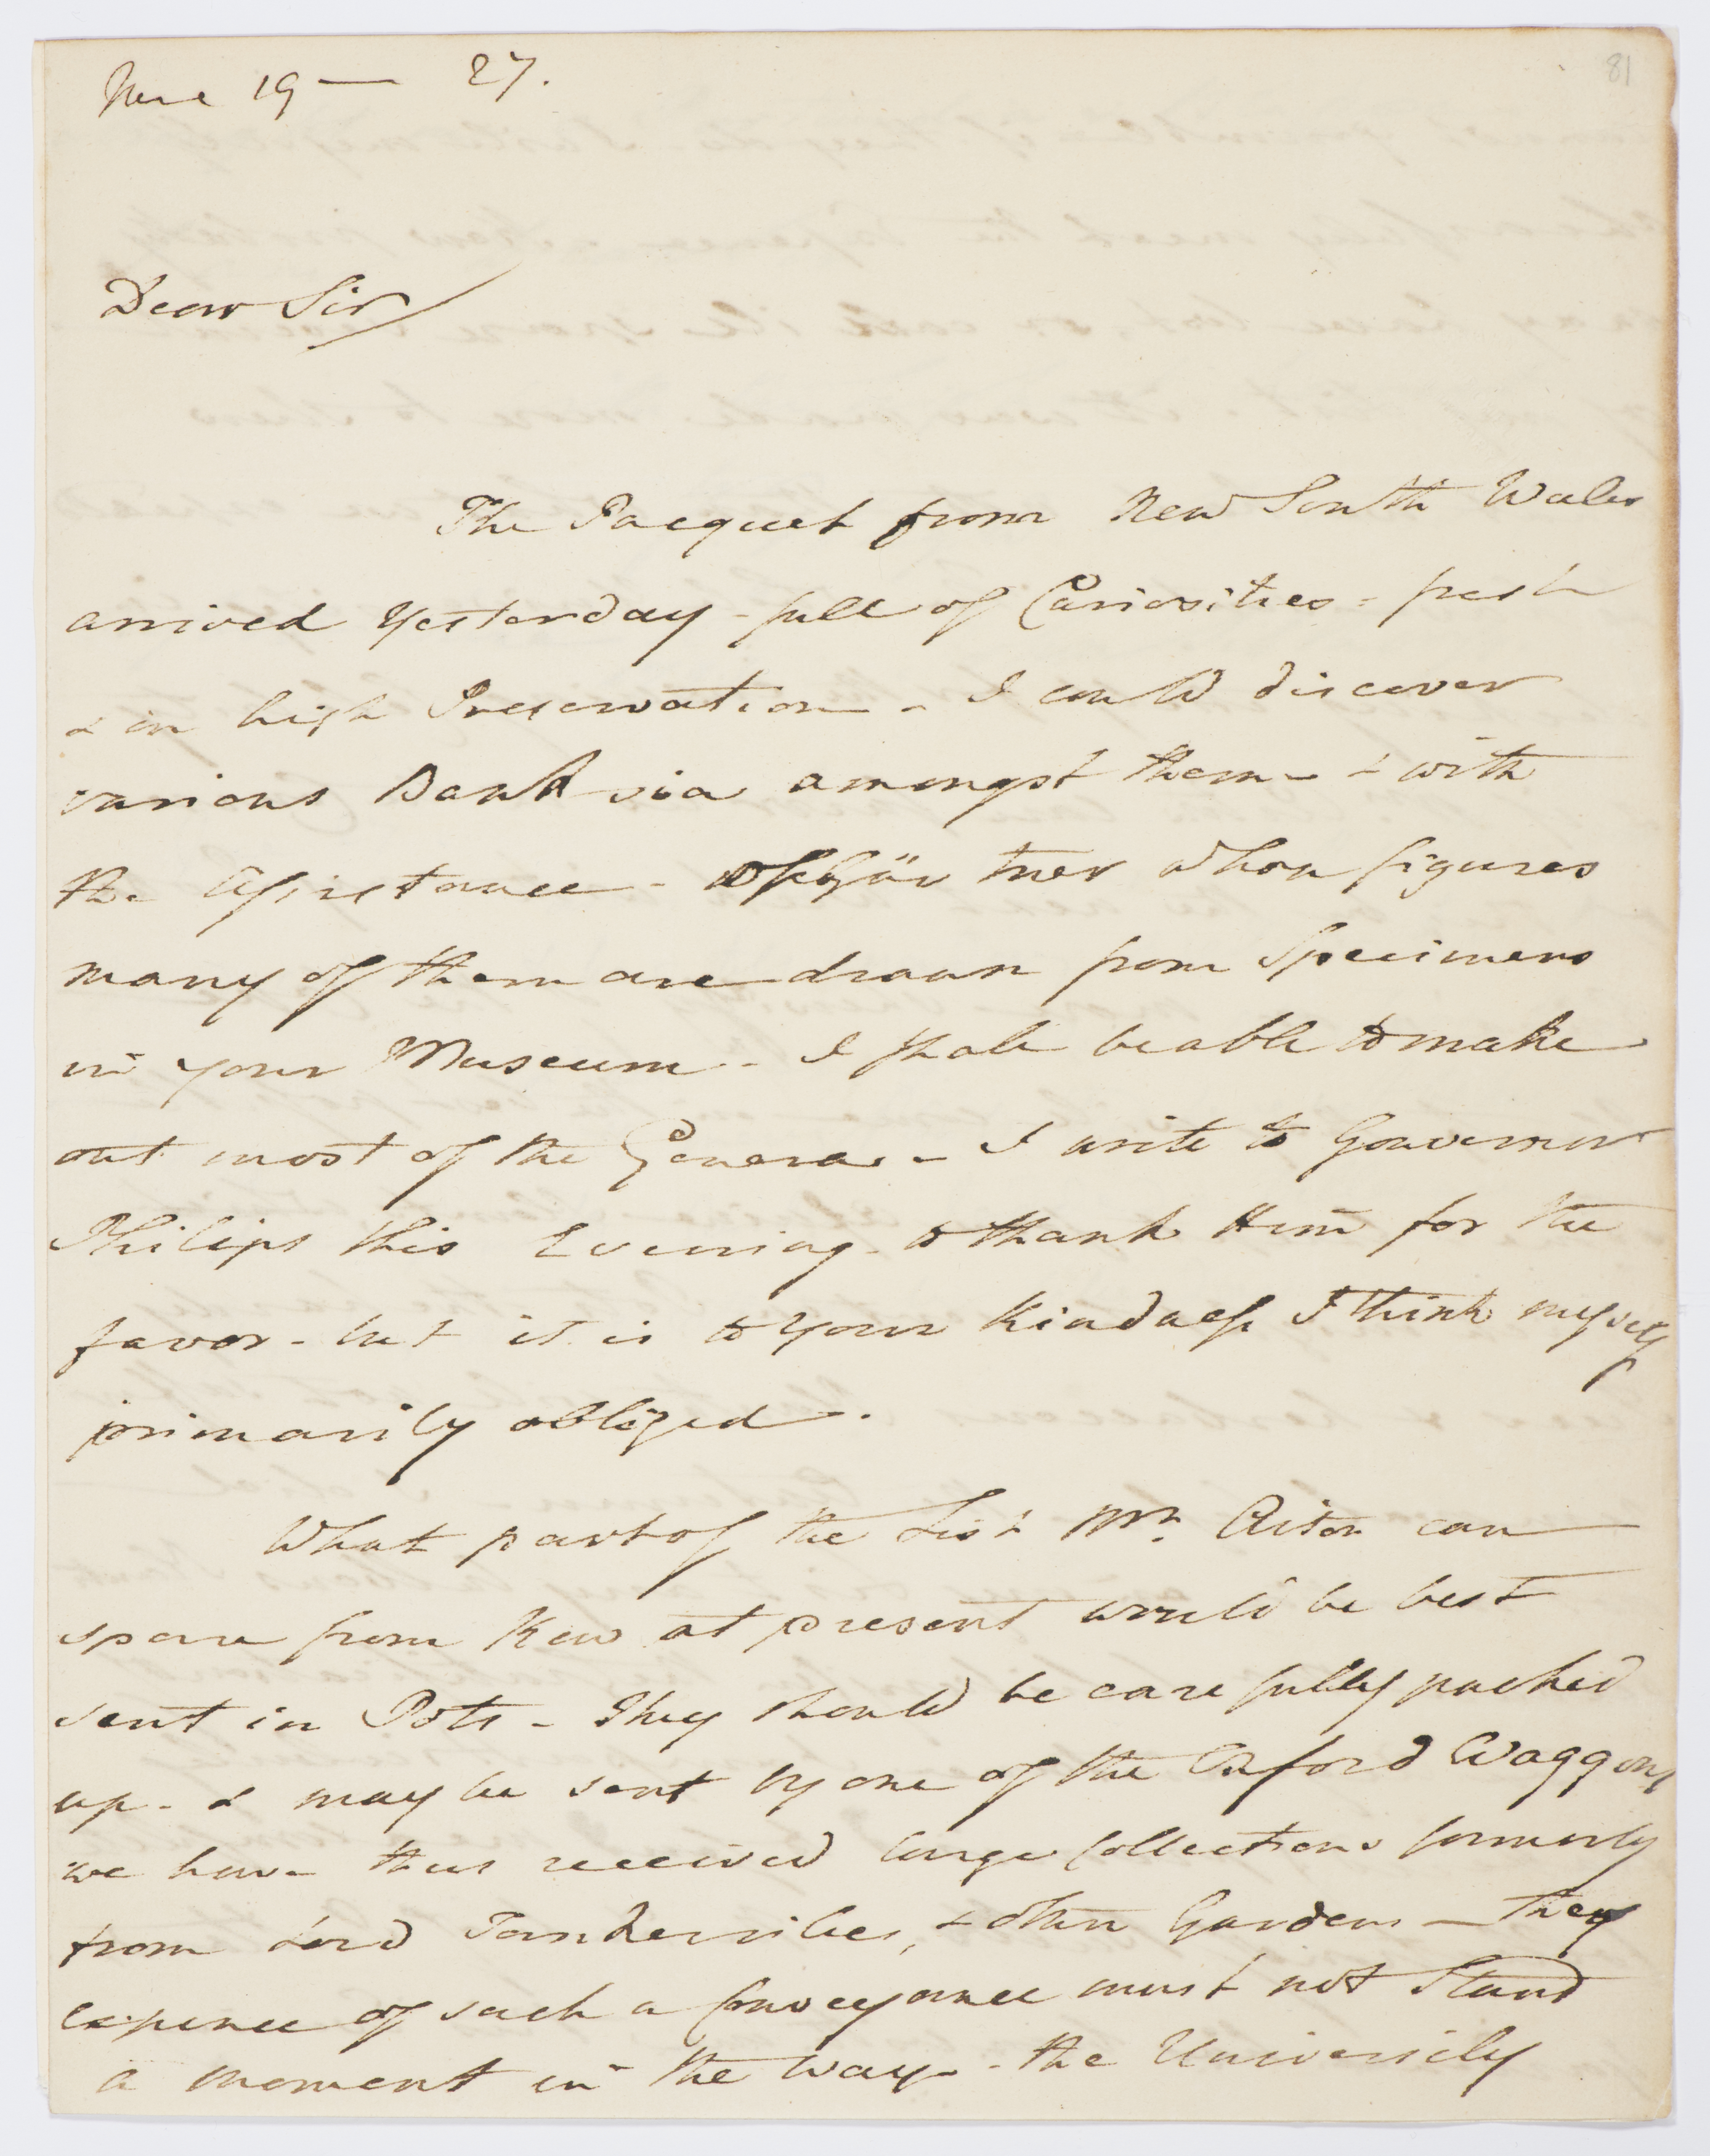 June 19 — 27.
81
Dear Sir/
The Pacquet from New South Wales
arrived Yesterday - full of Curiosities - fresh
& in high Preservation - I could discover
various Banksia amongst them - & with
the Assistance - of Gärtner whose figures
many of them are drawn from Specimens
in your Museum - I shall be able to make
out most of the Genera - I write to Gouvernor
Philips this Evening - to thank Him for the
favor - but it is to your Kindness I think myself
primarily obliged.
What part of the List Mr. Aiton can
spare from Kew at present would be best
sent in Pots - They should be carefully packed
up - & may be sent by one of the Oxford Waggons
we have thus received large Collections formerly
from Lord Tankervilles, & other Gardens - They
expence of such a Conveyance must not Stand
a moment in the way - the University